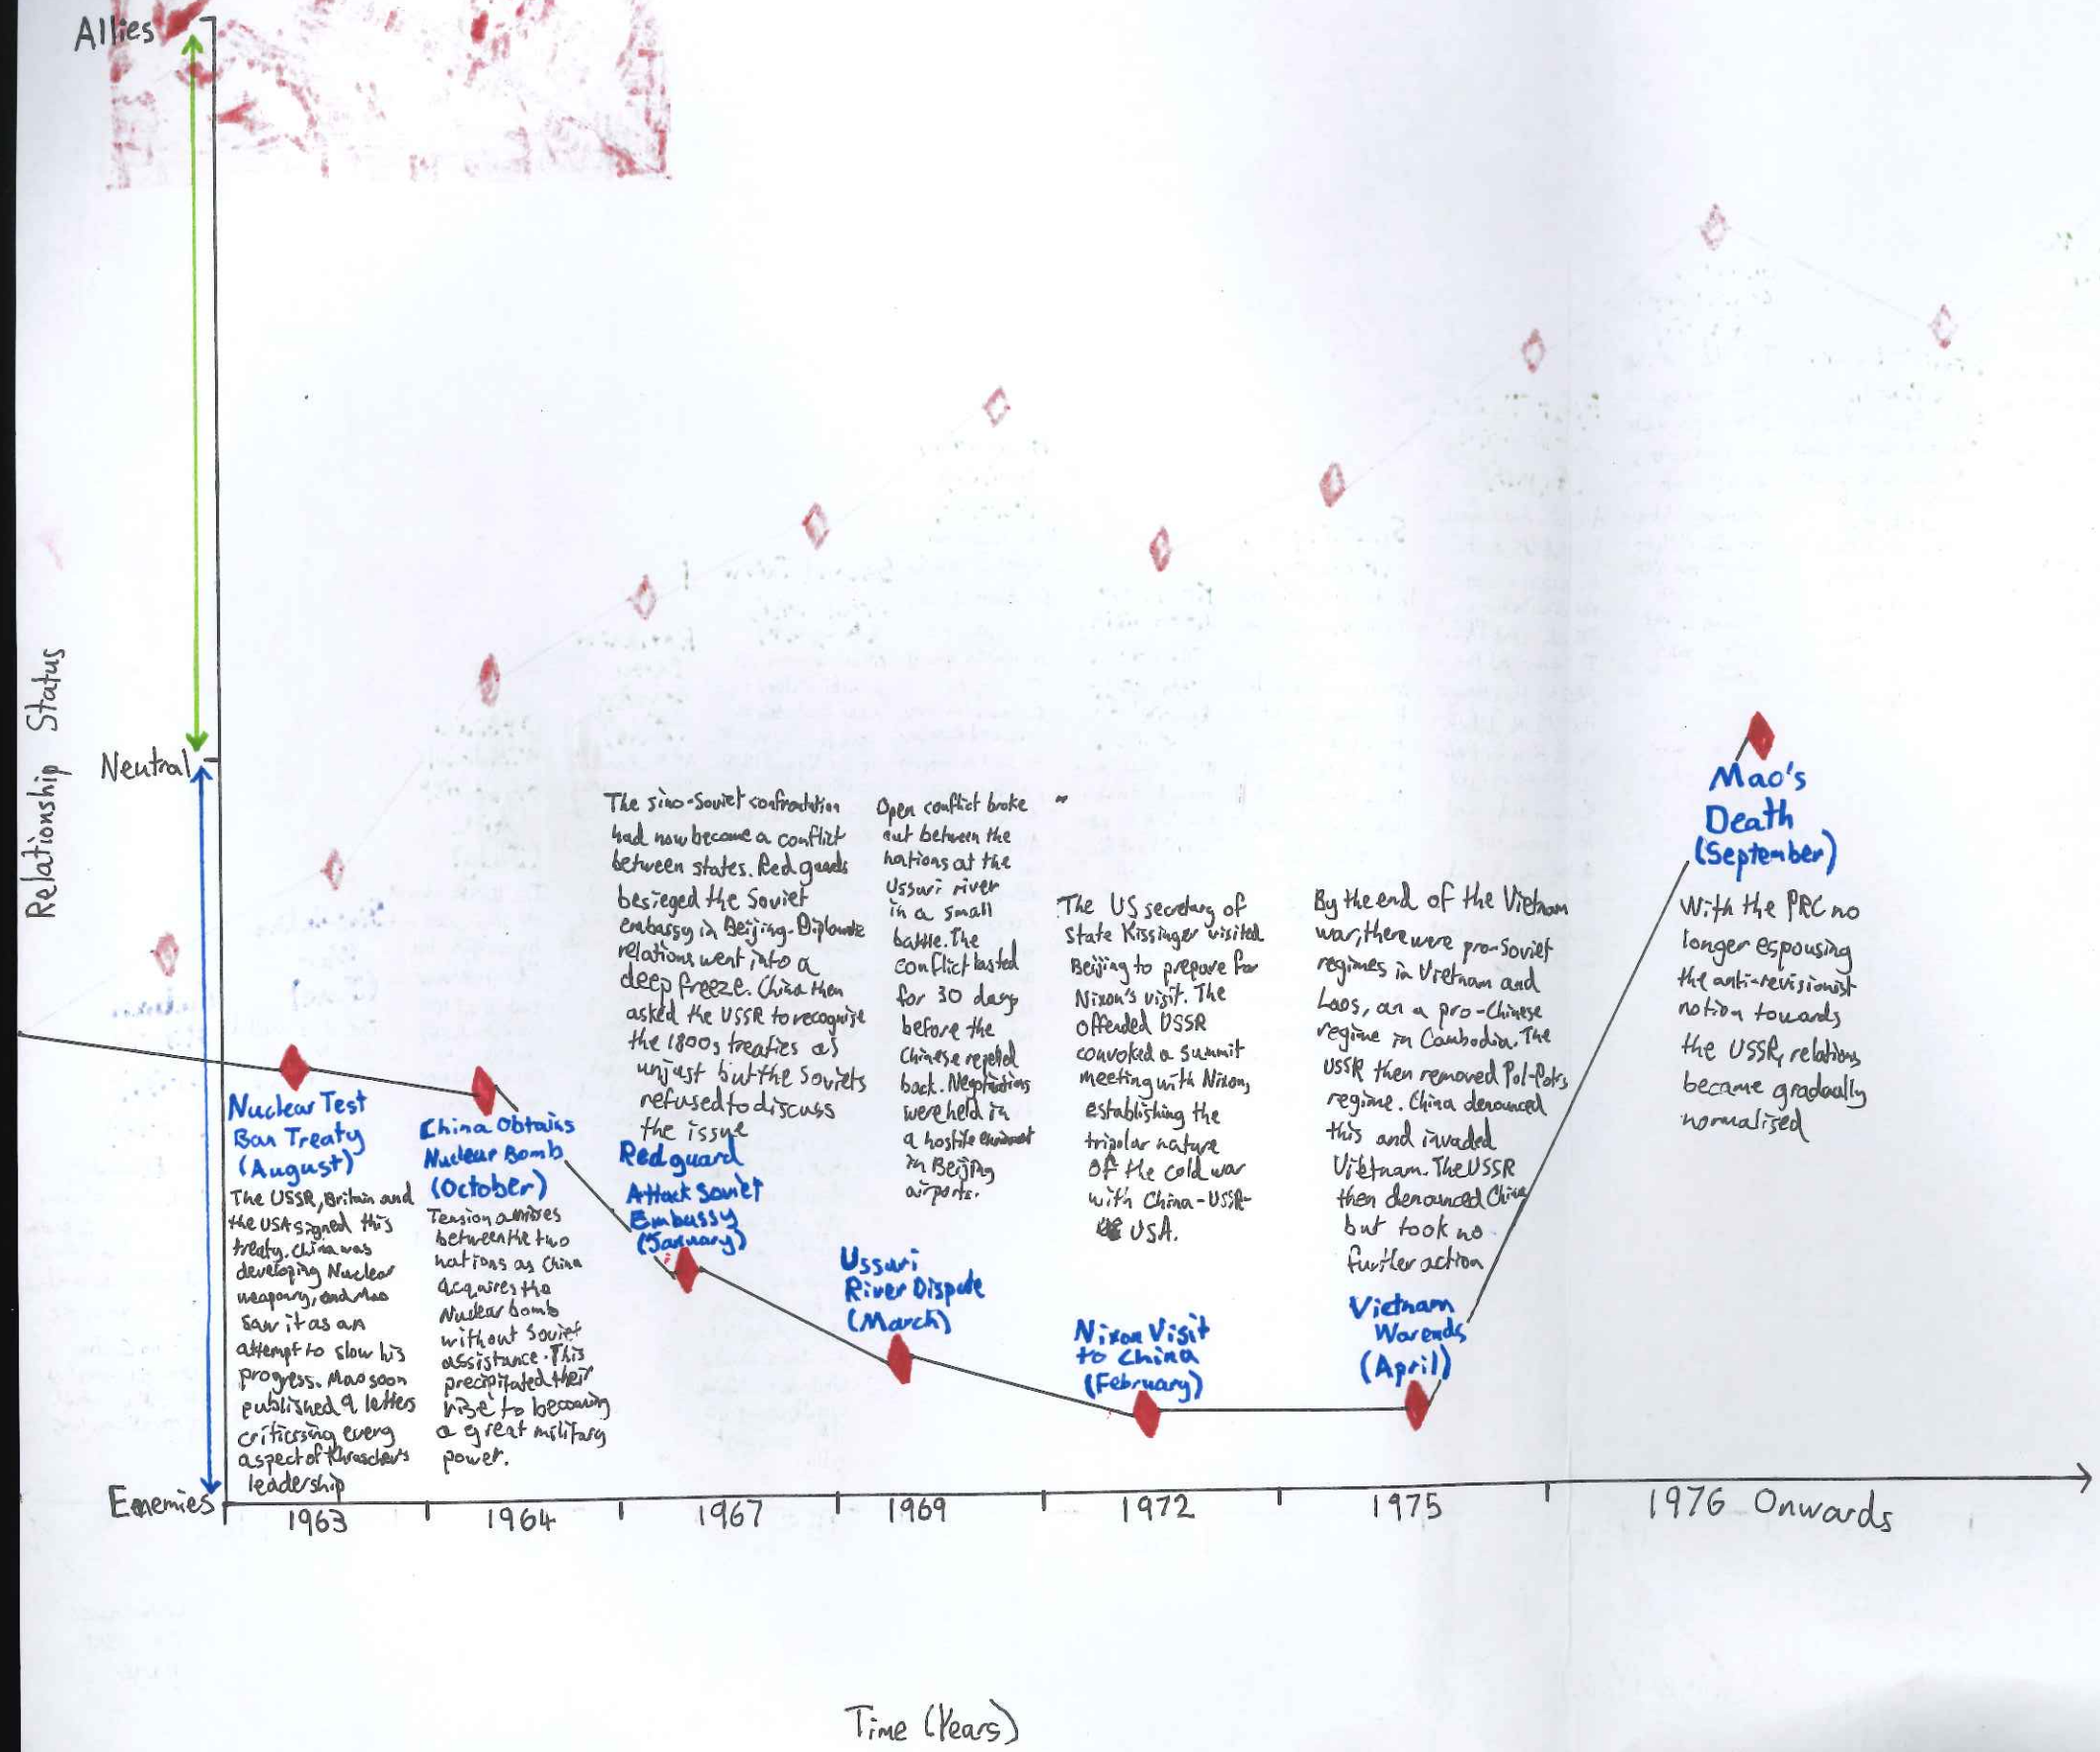 Allies
Relationship Status
Neutral
Enemies
Nuclear Test
Ban Treaty
(August)
The USSR, Britain and
the USA signed this
treaty. China was
developing Nuclear
weapony, and Mao
saw it as an
attempt to slow his
progress. Mao soon
published 9 letters
criticising every
aspect of
leadership
China Obtains
Nuclear Bomb
(October)
Tension
between the two
nations as China
acquires the
Nuclear bomb
without Soviet
assistance. This
precipitated their
rise to becoming
a great military
power.
The sino-Soviet confrontation
had now become a conflict
between states. Red guards
besieged the Soviet
embassy in Beijing.
relations went into a
deep freeze. China then
asked the USSR to recognise
the 1800s treaties as
unjust but the Soviets
refused to discuss
the issue
Red guard
Attack Soviet
Embassy
(January)
Open conflict broke
out between the
nations at the
Ussuri river
in a small
battle. The
conflict lasted
for 30 days
before the
Chinese
back. Negotiations
were held in
a hostile
in Beijing
airports.
Ussuri
River Dispute
(March)
The US secretary of
State Kissinger visited
Beijing to prepare for
Nixon's visit. The
offended USSR
convoked a summit
meeting with Nixon,
establishing the
tripolar nature
of the cold war
with China-USSR-
USA.
Nixon Visit
to China
(February)
By the end of the Vietnam
war, there were pro-Soviet
regimes in Vietnam and
Laos, an a pro-Chinese
regime in Cambodia. The
USSR then removed Pol-Pot's
regime. China denounced
this and invaded
Vietnam. The USSR
then denounced China
but took no
further action
Vietnam
War ends
(April)
Mao's
Death
(September)
With the PRC no
longer espousing
the anti-revisionist
notion towards
the USSR, relations
became gradually
normalised
1963
1964
1967
1969
1972
1975
1976 Onwards
Time (Years)